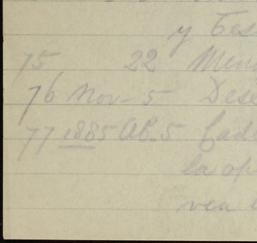 y Tes
75 22 Mem
76 Nov- 5 Dese
77 1885 Ab. 5 Cade
la op
ven